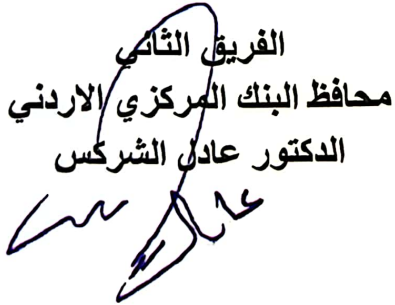 الفريق الثاني
محافظ البنك المركزي الاردني
الدكتور عادل الشركس